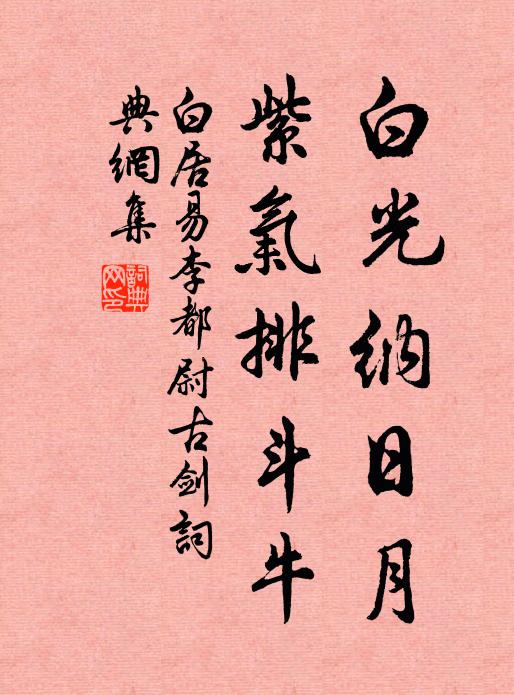 白光納日月
紫氣排斗牛
白居易李都尉古剑詞
典網集
詞典
网印